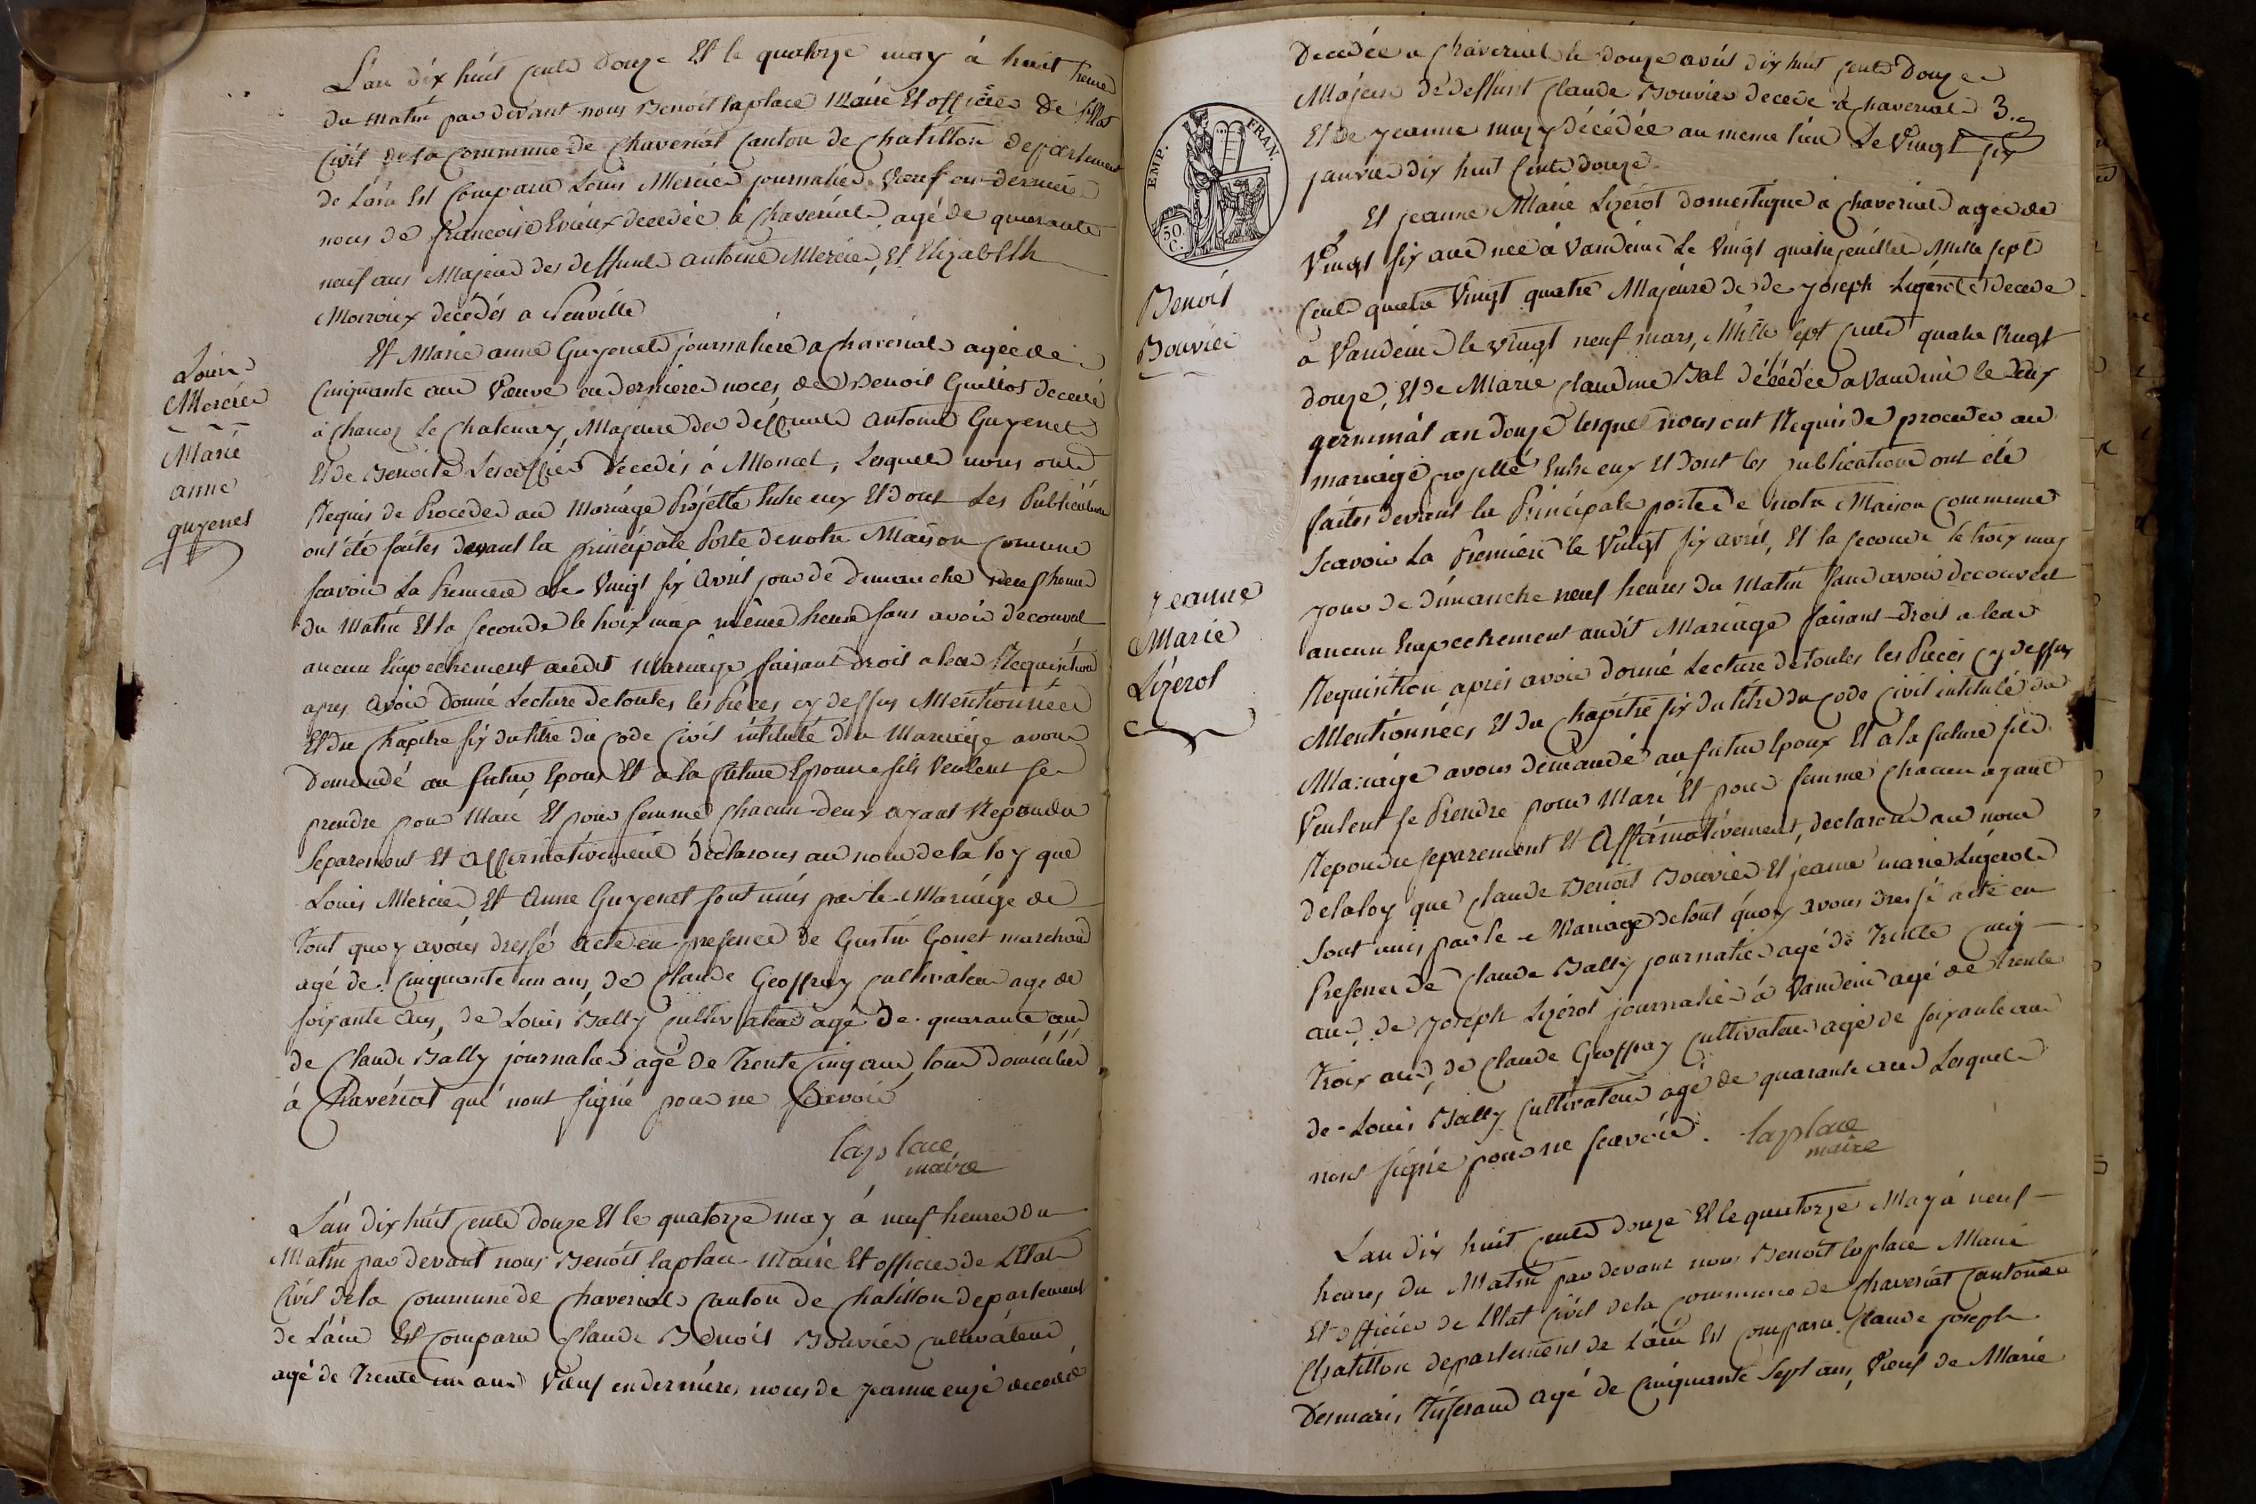 L'an dix huit cents douze Et le quatorze may à huit heures
du matin par devant nous Benoit laplace Maire Et officier De l'Etat
Civil de la Commune de Chaveriat Canton de Chatillon departement
de L'ain Est Comparu Louis Mercier journalier Veuf en dernieres
noces de francoise decedée à Chaveriat agé de quarante
neuf ans Majeur des deffunts antoine Mercier Et Elizabeth
décédés a Neuville
Et Marie anne Guyenet journaliere a Chaveriat agée de
Cinquante ans Veuve en dernieres noces de Benoit Guillot decedé
à Chanoz Le Chatenay, Majeure des deffunts antoine Guyenet
Et de Benoite décédés à Moncet, Lesquels nous ont
Requis de Proceder au Mariage Projetté Entre eux Et Dont Les Publications
ont été faites devant la principale Porte de notre Maison Comune
scavoir La Premiere le Vingt six avril jour de Dimanche neuf heures
du Matin Et la seconde le troix may même heure sans avoir decouvert
aucun Empechement audit Mariage faisant droit a leur Requisition
apres avoir donné Lecture de toutes les Pièces cy dessus Mentionnées
Et du Chapitre six du titre du Code Civil intitulé du Mariage avons
Demandé au futur Epoux Et a la future Epouse sils Veulent se
prendre pour Mari Et pour femme Chacun deux ayant Repondu
Separement Et affirmativement déclarons au nom de la loy que
Louis Mercier Et Anne Guyenet sont unis par le Mariage de
Tout quoy avons dressé acte en presence de Gustin Gonet marchand
agé de Cinquante un ans, de Claude Geoffray cultivateur age de
soixante ans, de Louis Bally cultivateur agé de quarante ans
de Claude Bally journalier agé de Trente Cinq ans tous domiciliés
à Chavériat qui n'ont signé pour ne scavoir
laplace
maire
Louis
Mercier
Marie
anne
guyenet
L'an dix huit cents douze Et le quatorze may à neuf heures du
Matin par devant nous Benoit laplace Maire Et officier de L'Etat
Civil de la Commune de Chaveriat Canton de Chatillon departement
de L'ain Est Comparu Claude Benoit Bouvier Cultivateur
agé de Trente un ans Veuf en dernieres noces de Jeanne decedé
Decedée a Chaveriat le douze avril dix huit cents Douze
Majeur de deffunt Claude Bouvier decede à Chaveriat
3.
Et de Jeanne décédée au meme lieu Le Vingt six
janvier dix huit Cents douze
Et jeanne Marie Lizerot domestique à Chaveriat agée de
Vingt six ans née à Vandeins Le Vingt quatre juillet Mille sept
Cents quatre Vingt quatre Majeure de de Joseph Lizerot decede
a Vandeins le Vingt neuf mars, Mille sept Cents quatre Vingt
douze, Et de Marie Claudine Bal décédée a Vandeins le Dix
germinal an Douze lesquel nous ont Requis de proceder au
mariage projetté Entre eux Et Dont les publications ont été
faites devant la Principale porte de notre Maison Commune
Scavoir La Premiere le Vingt six avril, Et la seconde le troix may
jour de dimanche neuf heures du Matin sans avoir decouvert
aucun Empechement audit Mariage faisant Droit a leur
Requisition apres avoir donné Lecture de toutes les Pieces cy dessus
Mentionnées Et du Chapitre six du titre du Code Civil intitulé du
Mariage avons demandé au futur Epoux Et à la future sils
Veulent se Prendre pour Mari Et pour femme Chacun ayant
Repondu separement Et Affirmativement, declarons au nom
de la loy que Claude Benoit Bouvier Et jeanne marie Lizerot
Sont unis par le Mariage de tout quoy avons dressé acte en
Presence de Claude Bally journalier agé de Trente cinq
ans, de Joseph Lizerot journalier à Vandeins agé de trente
troix ans, de Claude Geoffray cultivateur agé de soixante ans
de Louis Bally Cultivateur agé de quarante ans Lesquels
nont signé pour ne scavoir.
laplace
maire
EMP. FRAN.
50. C.
Benoit
Bouvier
Jeanne
Marie
Lizerot
L'an dix huit cents douze Et le quatorze May à neuf
heures du Matin par devant nous Benoit laplace Maire
Et officier de L'Etat Civil de la Commune de Chaveriat Canton de
Chatillon departement de L'ain Est comparu Claude joseph
Desmaris Tisserand agé de Cinquante Sept ans, Veuf de Marie